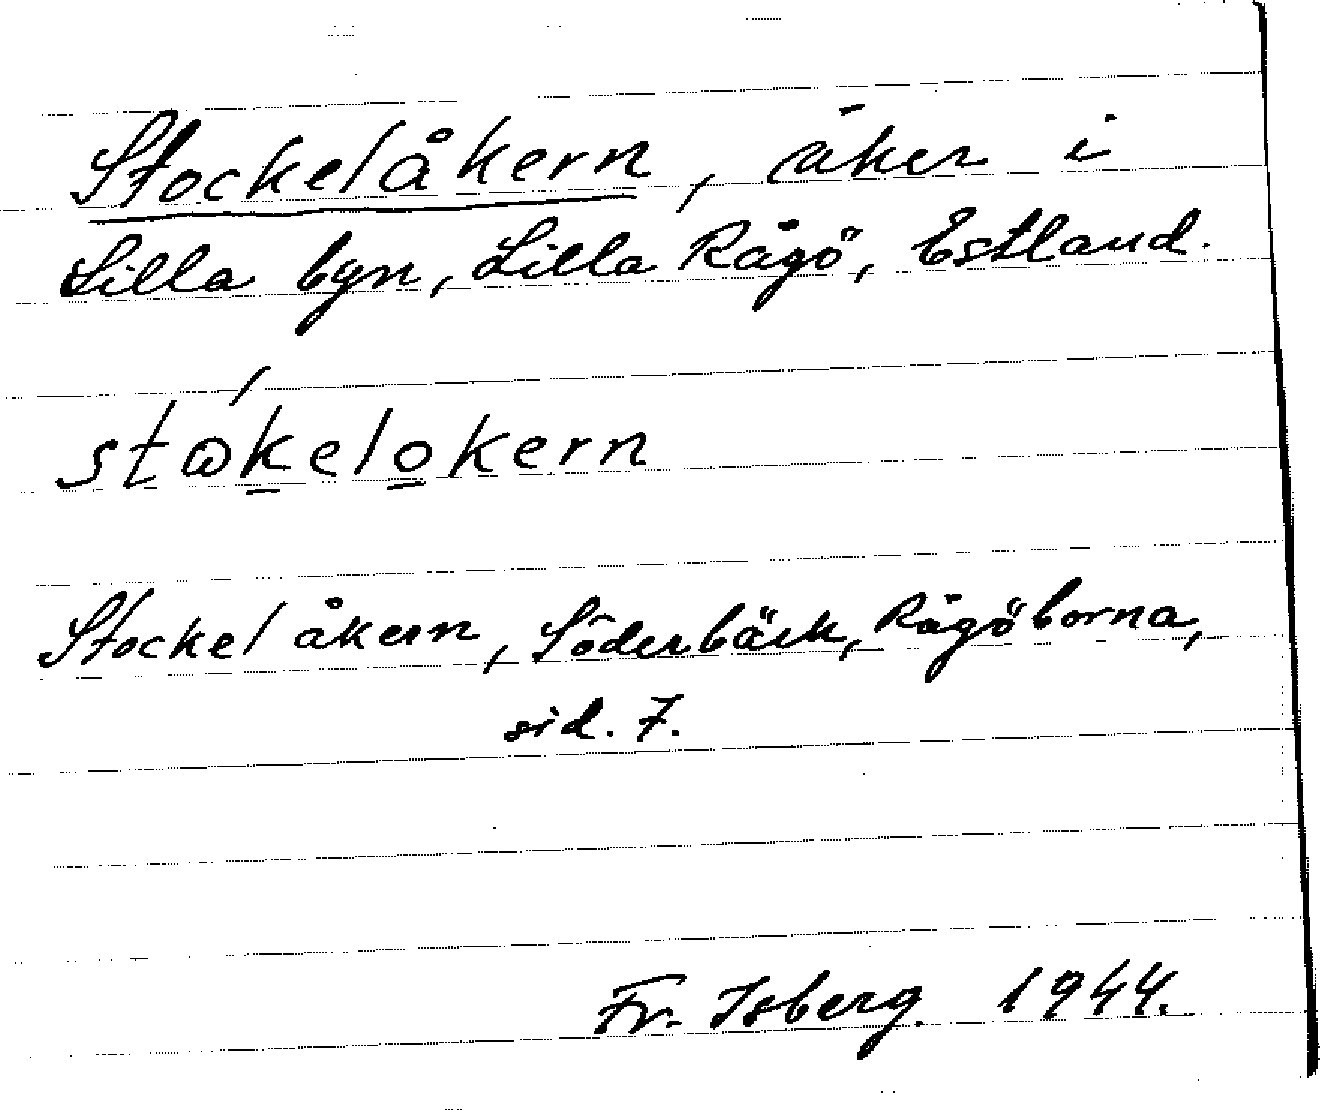 Stockelåkern, åker i
Lilla byn, Lilla Rågö, Estland.
stωkelokern
Stockel åkern, Söderbäck, Rågöborna,
sid. 7.
Fr. Isberg. 1944.